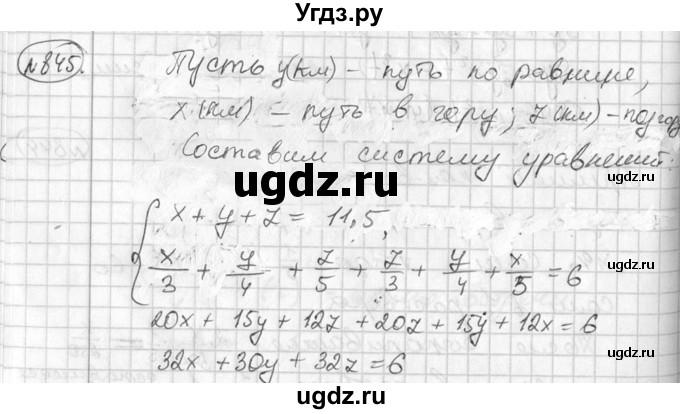 Угдз.ру
№845.
Пусть y(км) – путь по равнине,
x(км) – путь в гору; z(км) – под гору
Составим систему уравнений:
ugdz.ru
ugdz.ru
{ x + y + z = 11,5,
x/3 + y/4 + z/5 + z/3 + y/4 + x/5 = 6
20x + 15y + 12z + 20z + 15y + 12x = 6
32x + 30y + 32z = 6
ugdz.ru